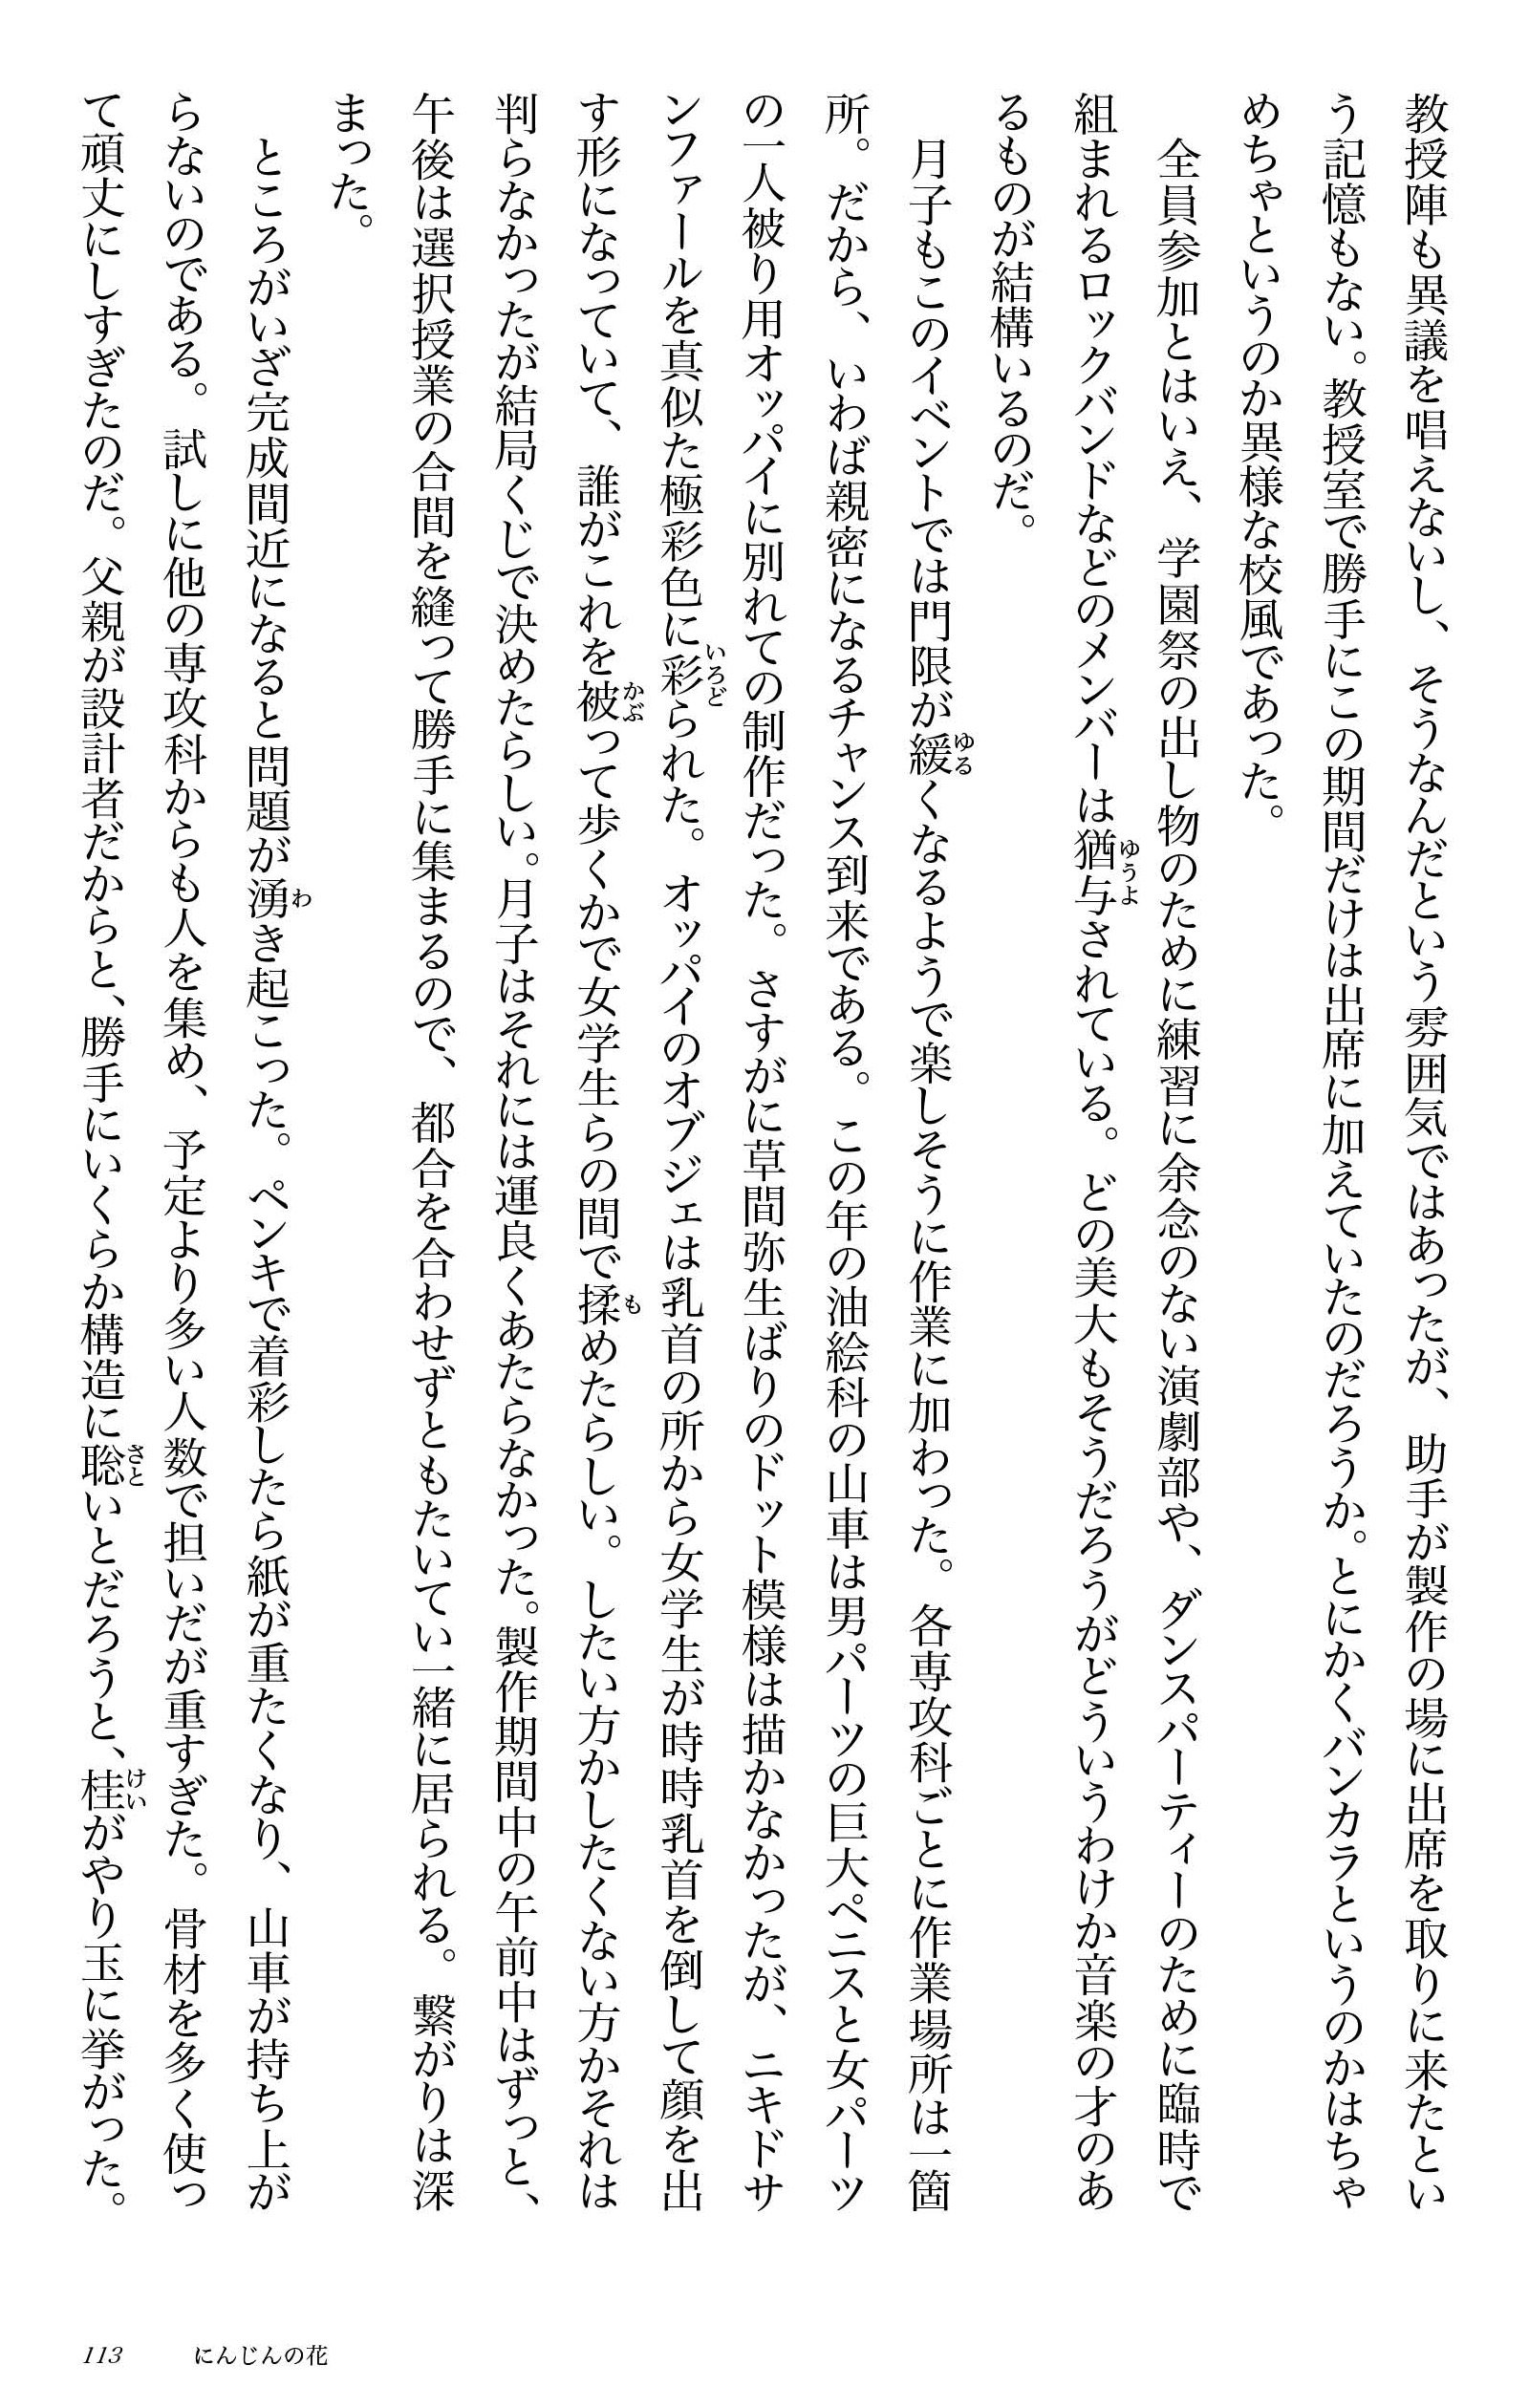 教授陣も異議を唱えないし、そうなんだという雰囲気ではあったが、助手が製作の場に出席を取りに来たとい
う記憶もない。教授室で勝手にこの期間だけは出席に加えていたのだろうか。とにかくバンカラというのかはちゃ
めちゃというのか異様な校風であった。
　全員参加とはいえ、学園祭の出し物のために練習に余念のない演劇部や、ダンスパーティーのために臨時で
組まれるロックバンドなどのメンバーは猶与されている。どの美大もそうだろうがどういうわけか音楽の才のあ
るものが結構いるのだ。
　月子もこのイベントでは門限が緩くなるようで楽しそうに作業に加わった。各専攻科ごとに作業場所は一箇
所。だから、いわば親密になるチャンス到来である。この年の油絵科の山車は男パーツの巨大ペニスと女パーツ
の一人被り用オッパイに別れての制作だった。さすがに草間弥生ばりのドット模様は描かなかったが、ニキドサ
ンファールを真似た極彩色に彩られた。オッパイのオブジェは乳首の所から女学生が時時乳首を倒して顔を出
す形になっていて、誰がこれを被って歩くかで女学生らの間で揉めたらしい。したい方かしたくない方かそれは
判らなかったが結局くじで決めたらしい。月子はそれには運良くあたらなかった。製作期間中の午前中はずっと、
午後は選択授業の合間を縫って勝手に集まるので、都合を合わせずともたいてい一緒に居られる。繋がりは深
まった。
　ところがいざ完成間近になると問題が湧き起こった。ペンキで着彩したら紙が重たくなり、山車が持ち上が
らないのである。試しに他の専攻科からも人を集め、予定より多い人数で担いだが重すぎた。骨材を多く使っ
て頑丈にしすぎたのだ。父親が設計者だからと、勝手にいくらか構造に聡いとだろうと、桂がやり玉に挙がった。
113　にんじんの花